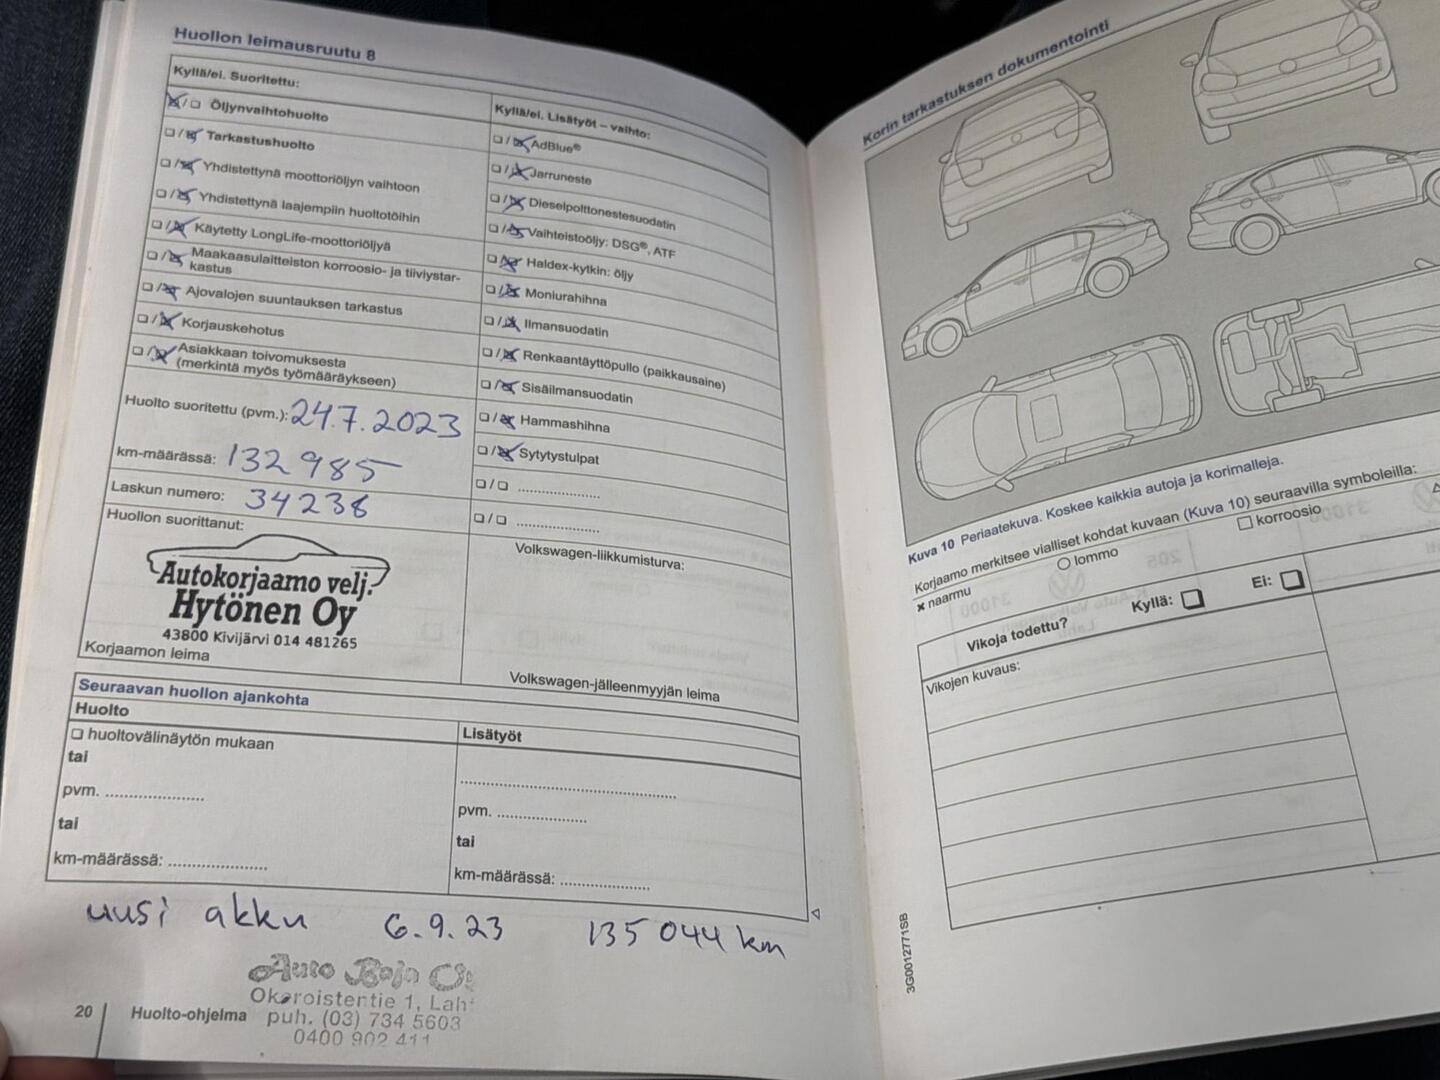 Huollon leimausruutu 8
Kyllä/ei. Suoritettu:
Öljynvaihtohuolto
Tarkastushuolto
Yhdistettynä moottoriöljyn vaihtoon
Yhdistettynä laajempiin huoltotöihin
Käytetty LongLife-moottoriöljyä
Maakaasulaitteiston korroosio- ja tiiviystar-
kastus
Ajovalojen suuntauksen tarkastus
Korjauskehotus
Asiakkaan toivomuksesta
(merkintä myös työmääräykseen)
Huolto suoritettu (pvm.): 24.7.2023
km-määrässä: 132 985
Laskun numero: 34238
Huollon suorittanut:
Autokorjaamo velj.
Hytönen Oy
43800 Kivijärvi 014 481265
Korjaamon leima
Kyllä/ei. Lisätyöt – vaihto:
AdBlue®
Jarruneste
Dieselpolttonestesuodatin
Vaihteistoöljy: DSG®, ATF
Haldex-kytkin: öljy
Moniurahihna
Ilmansuodatin
Renkaantäyttöpullo (paikkausaine)
Sisäilmansuodatin
Hammashihna
Sytytystulpat
Volkswagen-liikkumisturva:
Volkswagen-jälleenmyyjän leima
Seuraavan huollon ajankohta
Huolto
huoltovälinäytön mukaan
tai
pvm. ....................
tai
km-määrässä: ....................
Lisätyöt
pvm. ....................
tai
km-määrässä: ....................
uusi akku 6.9.23 135 044 km
Auto
1,
puh. (03) 734 5603
0400 902 411
20 Huolto-ohjelma
Korin tarkastuksen dokumentointi
Kuva 10 Periaatekuva. Koskee kaikkia autoja ja korimalleja.
Korjaamo merkitsee vialliset kohdat kuvaan (Kuva 10) seuraavilla symboleilla:
naarmu
lommo
korroosio
Vikoja todettu? Kyllä: Ei:
Vikojen kuvaus:
3G0012771SB